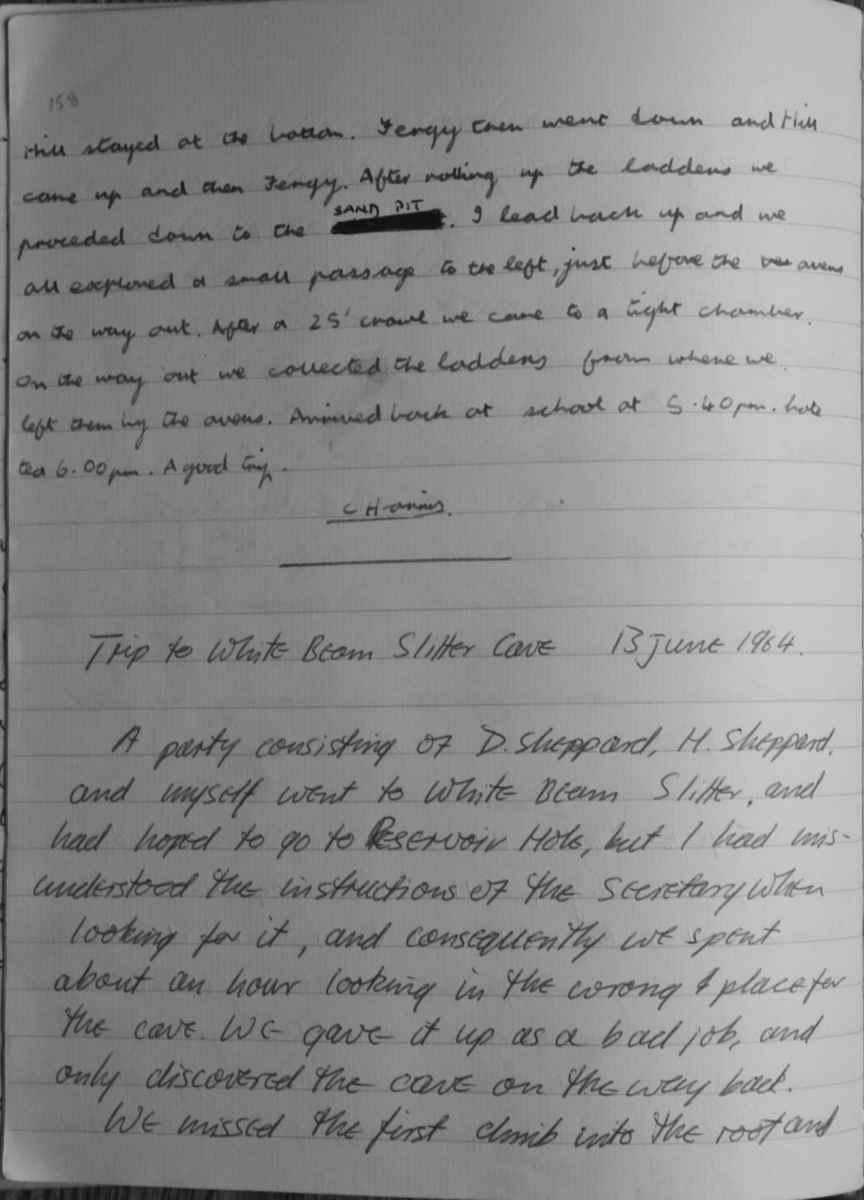 158
Hill stayed at the bottom. Fergy then went down and Hill
came up and then Fergy. After rolling up the ladders we
proceded down to the SAND PIT. I lead back up and we
all explored a small passage to the left, just before the avens
on the way out. After a 25' crawl we came to a tight chamber.
On the way out we collected the ladders from where we
left them by the avens. Arrived back at school at 5.40pm. hot
tea 6.00pm. A good trip.
C H
Trip to White Beam Slitter Cave 13 June 1964.
A party consisting of D. Sheppard, H. Sheppard,
and myself went to White Beam Slitter, and
had hoped to go to Reservoir Hole, but I had mis-
understood the instructions of the Secretary when
looking for it, and consequently we spent
about an hour looking in the wrong place for
the cave. We gave it up as a bad job, and
only discovered the cave on the way back.
We missed the first climb into the roof and